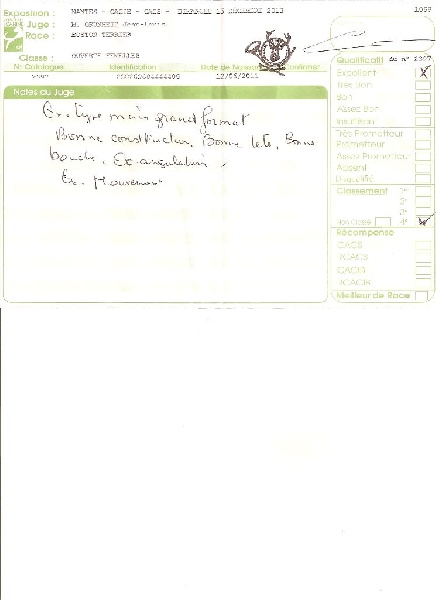 Exposition : NANTES - CACIB - CACS - DIMANCHE 15 DECEMBRE 2013
1059
Juge :
Race : BOSTON TERRIER
Classe : OUVERTE FEMELLES
N° Catalogue Identification Date de Naissance
12/06/2011
Notes du Juge
Ex. type mais grand format
Bonne construction, Bonne tete, Bonne
bouche, Ex angulation,
Ex. Mouvement
Qualificatif
Excellent
Très Bon
Bon
Assez Bon
Insuffisant
Très Prometteur
Prometteur
Assez Prometteur
Absent
Disqualifié
Classement 1er
2e
3e
Non Classé 4e
Récompense
CACS
RCACS
CACIB
RCACIB
Meilleur de Race